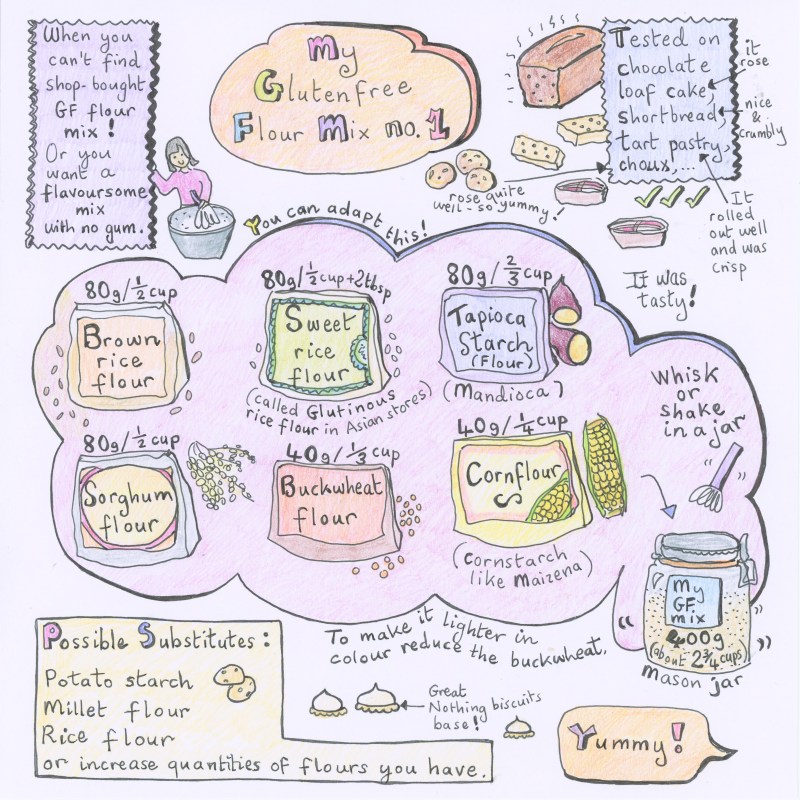 When you
can't find
shop-bought
GF flour
mix!
Or you
want a
flavoursome
mix
with no gum.
My
Glutenfree
Flour Mix no.1
Tested on
chocolate
loaf cake,
shortbread,
tart pastry,
choux,...
it
rose
nice
&
crumbly
rose quite
well - so yummy!
It
rolled
out well
and was
crisp
It was
tasty!
You can adapt this!
80g/½ cup
Brown
rice
flour
80g/½ cup + 2tbsp
Sweet
rice
flour
(called Glutinous
rice flour in Asian stores)
80g/⅔ cup
Tapioca
Starch
(Flour)
(Mandioca)
80g/½ cup
Sorghum
flour
40g/⅓ cup
Buckwheat
flour
40g/¼ cup
Cornflour
(cornstarch
like Maizena)
Whisk
or
shake
in a jar
My
GF
mix
400g
(about 2¾ cups)
mason jar
To make it lighter in
colour reduce the buckwheat.
Possible Substitutes:
Potato starch
Millet flour
Rice flour
or increase quantities of flours you have.
Great
Nothing biscuits
base!
Yummy!